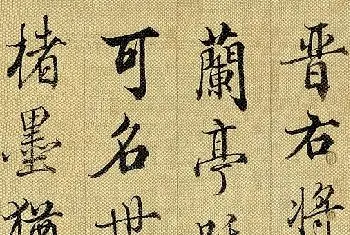 晋右将
蘭亭
可名世
楮墨猶